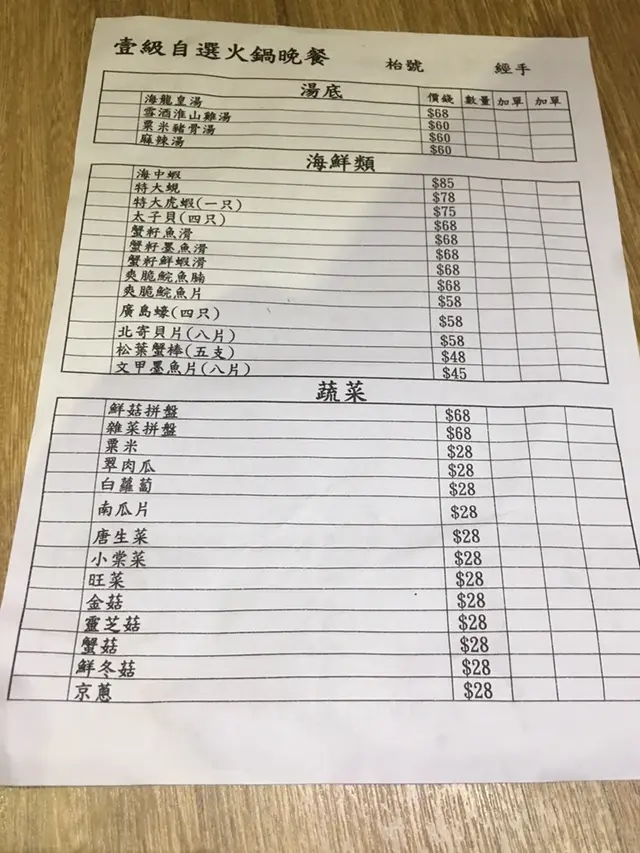 壹級自選火鍋晚餐 枱號 經手
湯底 價錢 數量 加單 加單
海龍皇湯 $68
雪酒淮山雞湯 $60
粟米豬骨湯 $60
麻辣湯 $60
海鮮類
海中蝦 $85
特大蜆 $78
特大虎蝦(一只) $75
太子貝(四只) $68
蟹籽魚滑 $68
蟹籽墨魚滑 $68
蟹籽鮮蝦滑 $68
爽脆鯇魚腩 $68
爽脆鯇魚片 $58
廣島蠔(四只) $58
北寄貝片(八片) $58
松葉蟹棒(五支) $48
文甲墨魚片(八片) $45
蔬菜
鮮菇拼盤 $68
雜菜拼盤 $68
粟米 $28
翠肉瓜 $28
白蘿蔔 $28
南瓜片 $28
唐生菜 $28
小棠菜 $28
旺菜 $28
金菇 $28
靈芝菇 $28
蟹菇 $28
鮮冬菇 $28
京蔥 $28